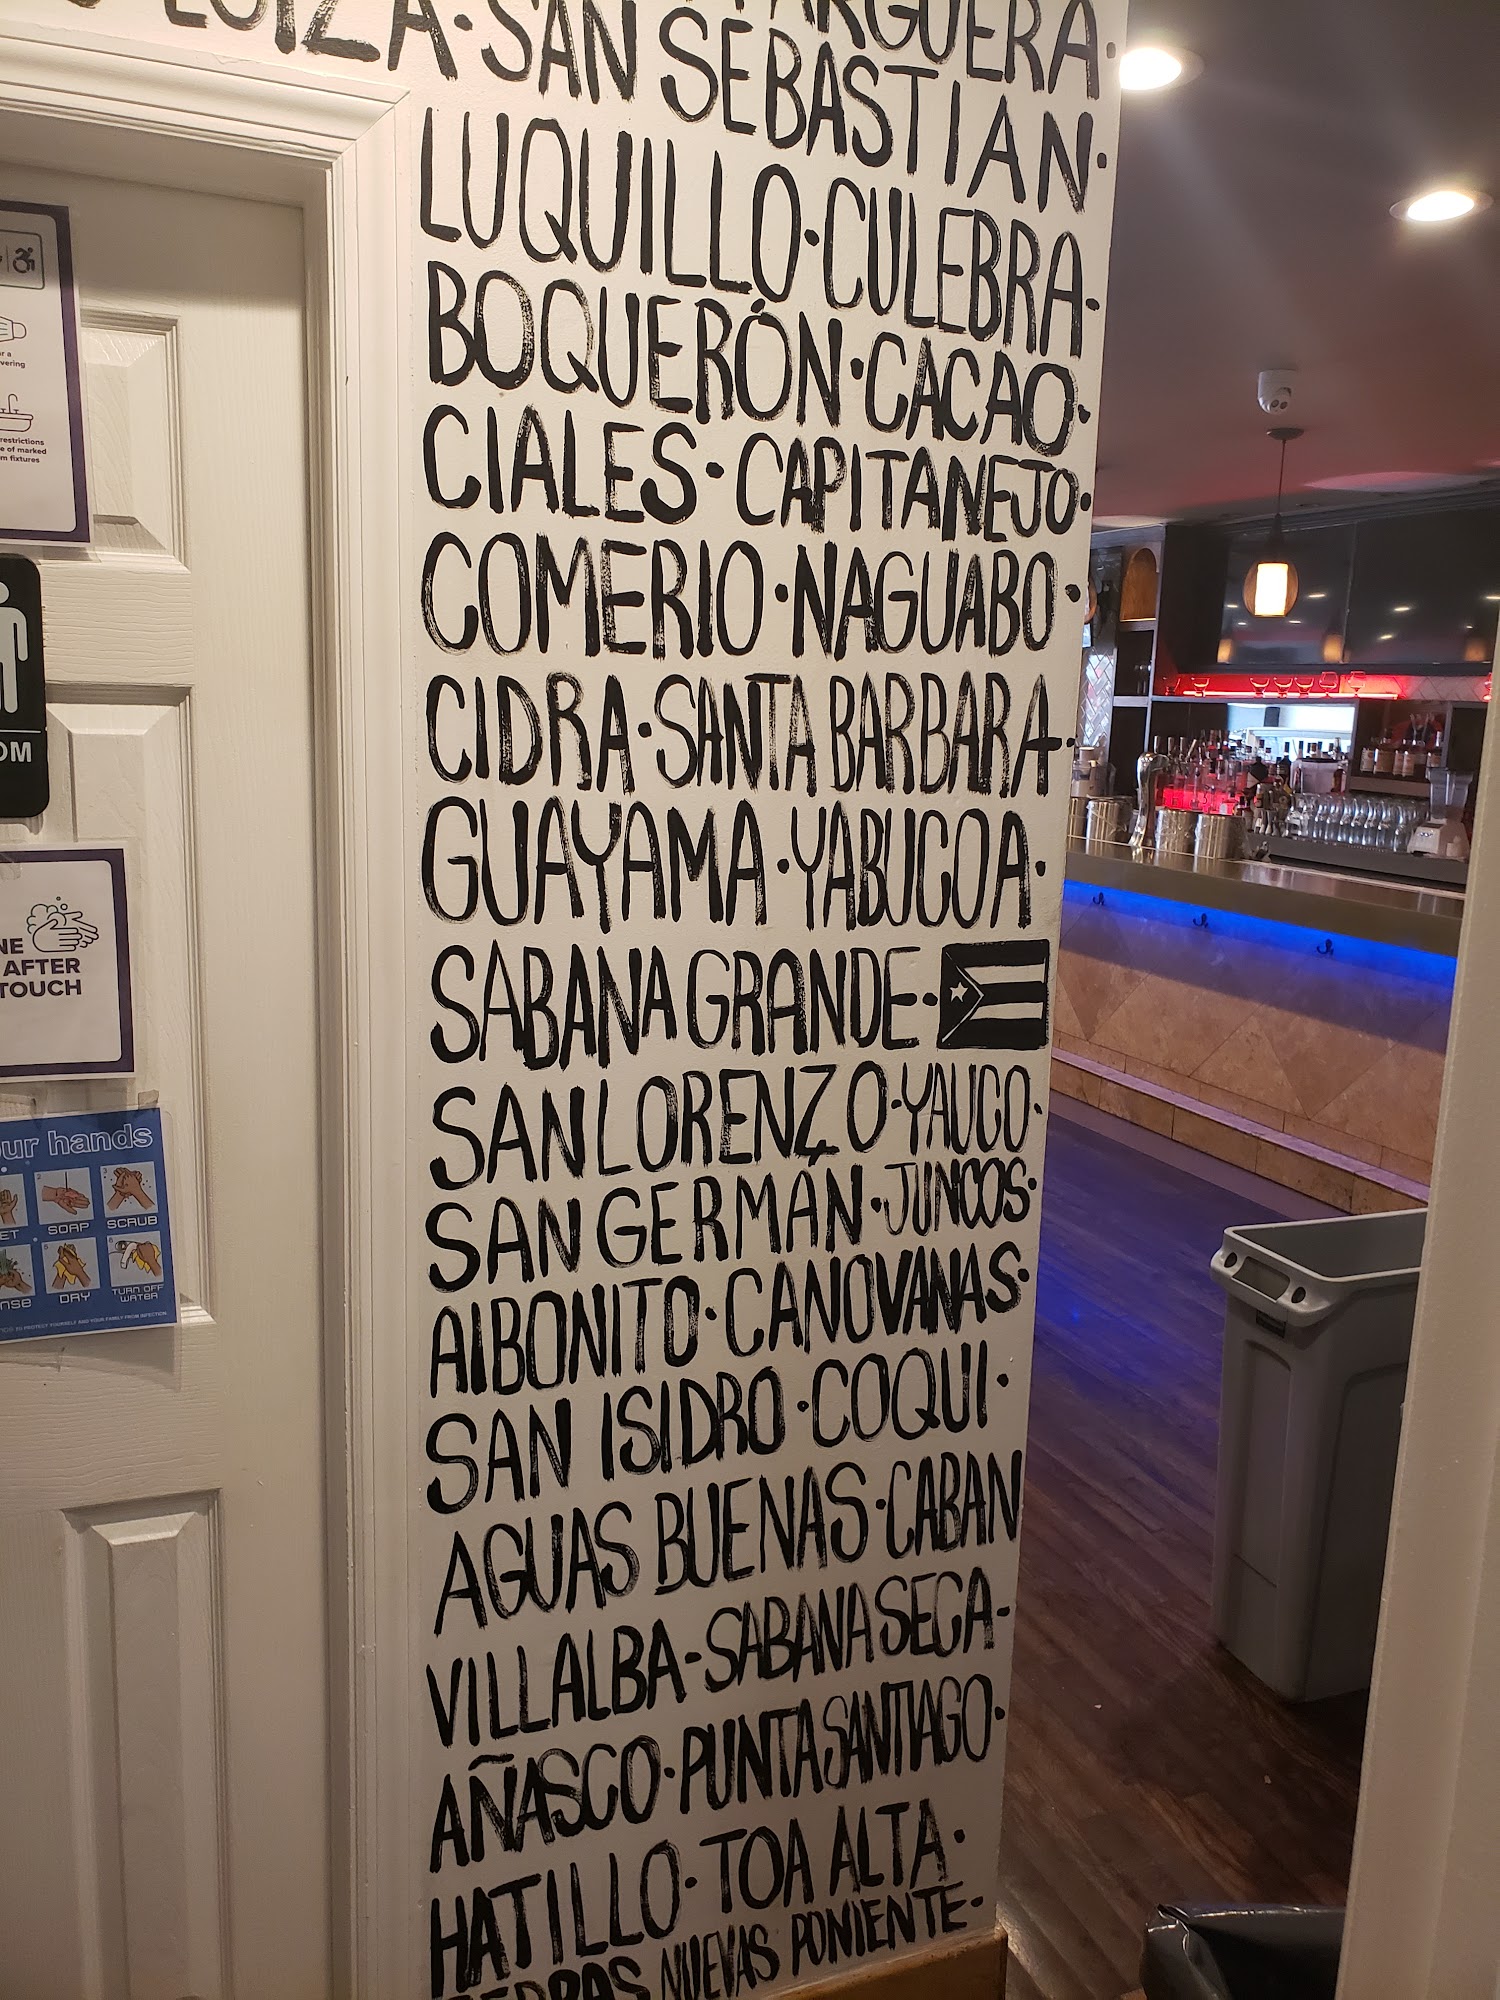 LOIZA · SAN SEBASTIAN ·
LUQUILLO · CULEBRA ·
BOQUERÓN · CACAO ·
CIALES · CAPITANEJO ·
COMERIO · NAGUABO ·
CIDRA · SANTA BARBARA ·
GUAYAMA · YABUCOA ·
SABANA GRANDE ·
SAN LORENZO · YAUCO ·
SAN GERMÁN · JUNCOS ·
AIBONITO · CANOVANAS ·
SAN ISIDRO · COQUI ·
AGUAS BUENAS · CABAN
VILLALBA · SABANA SECA ·
AÑASCO · PUNTA SANTIAGO ·
HATILLO · TOA ALTA ·
NUEVAS PONIENTE ·
restrictions
of marked
fixtures
AFTER
TOUCH
hands
SOAP SCRUB
DRY TURN OFF WATER